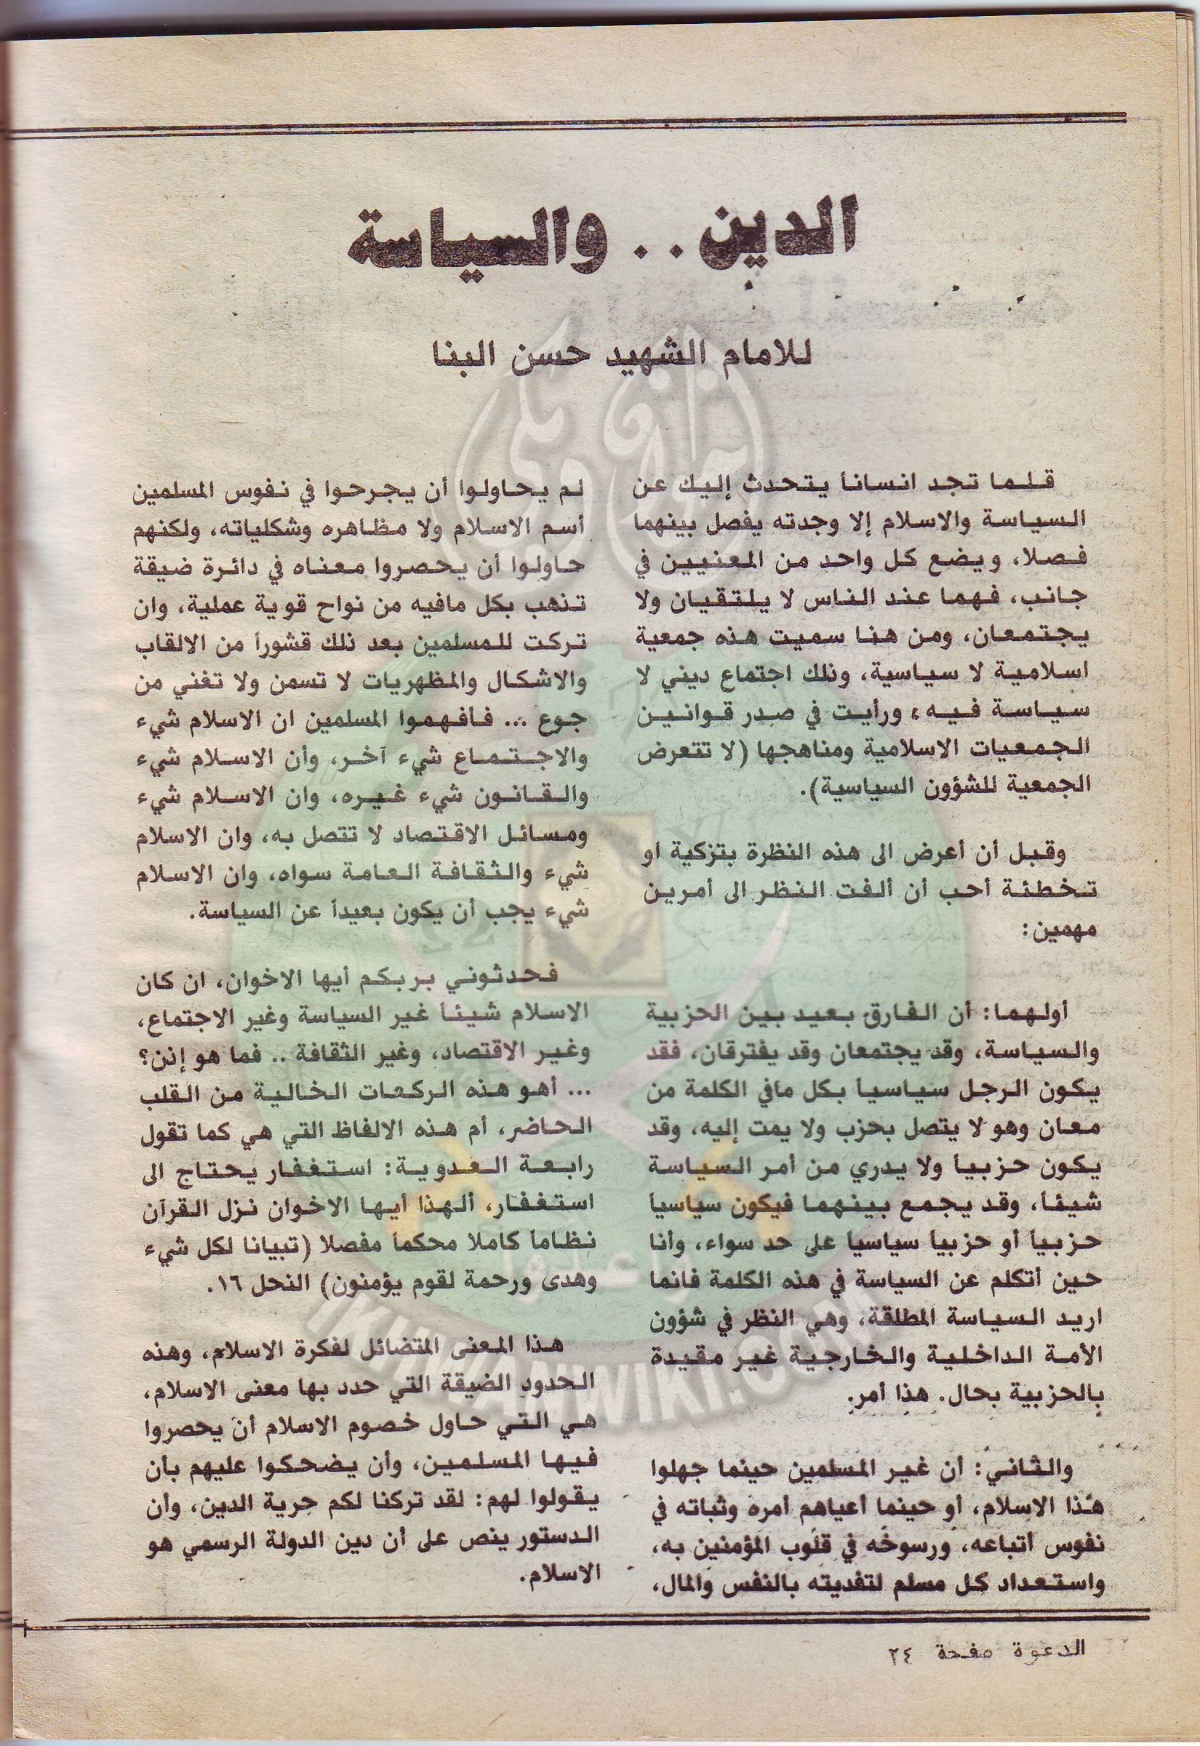 الدين .. والسياسة
للامام الشهيد حسن البنا
قلما تجد انساناً يتحدث إليك عن
السياسة والاسلام إلا وجدته يفصل بينهما
فصلا، ويضع كل واحد من المعنيين في
جانب، فهما عند الناس لا يلتقيان ولا
يجتمعان، ومن هنا سميت هذه جمعية
اسلامية لا سياسية، وذلك اجتماع ديني لا
سياسة فيه، ورأيت في صدر قوانين
الجمعيات الاسلامية ومناهجها (لا تتعرض
الجمعية للشؤون السياسية).
وقبل أن أعرض الى هذه النظرة بتزكية او
تخطئة أحب أن ألفت النظر الى أمرين
مهمين:
أولهما: أن الفارق بعيد بين الحزبية
والسياسة، وقد يجتمعان وقد يفترقان، فقد
يكون الرجل سياسياً بكل مافي الكلمة من
معان وهو لا يتصل بحزب ولا يمت إليه، وقد
يكون حزبياً ولا يدري من أمر السياسة
شيئاً، وقد يجمع بينهما فيكون سياسياً
حزبياً أو حزبياً سياسياً على حد سواء، وأنا
حين أتكلم عن السياسة في هذه الكلمة فانما
اريد السياسة المطلقة، وهي النظر في شؤون
الأمة الداخلية والخارجية غير مقيدة
بالحزبية بحال. هذا أمر.
والثاني: أن غير المسلمين حينما جهلوا
هذا الاسلام، أو حينما أعياهم أمره وثباته في
نفوس أتباعه، ورسوخه في قلوب المؤمنين به،
واستعداد كل مسلم لتفديته بالنفس والمال،
لم يحاولوا أن يجرحوا في نفوس المسلمين
أسم الاسلام ولا مظاهره وشكلياته، ولكنهم
حاولوا أن يحصروا معناه في دائرة ضيقة
تذهب بكل مافيه من نواح قوية عملية، وان
تركت للمسلمين بعد ذلك قشوراً من الالقاب
والاشكال والمظهريات لا تسمن ولا تغني من
جوع ... فأفهموا المسلمين ان الاسلام شيء
والاجتماع شيء آخر، وأن الاسلام شيء
والقانون شيء غيره، وان الاسلام شيء
ومسائل الاقتصاد لا تتصل به، وان الاسلام
شيء والثقافة العامة سواه، وان الاسلام
شيء يجب أن يكون بعيداً عن السياسة.
فحدثوني بربكم أيها الاخوان، ان كان
الاسلام شيئاً غير السياسة وغير الاجتماع،
وغير الاقتصاد، وغير الثقافة .. فما هو إذن؟
... أهو هذه الركعات الخالية من القلب
الحاضر، أم هذه الالفاظ التي هي كما تقول
رابعة العدوية: استغفار يحتاج الى
استغفار، ألهذا أيها الاخوان نزل القرآن
نظاماً كاملا محكماً مفصلا (تبيانا لكل شيء
وهدى ورحمة لقوم يؤمنون) النحل ١٦.
هذا المعنى المتضائل لفكرة الاسلام، وهذه
الحدود الضيقة التي حدد بها معنى الاسلام،
هي التي حاول خصوم الاسلام أن يحصروا
فيها المسلمين، وأن يضحكوا عليهم بأن
يقولوا لهم: لقد تركنا لكم حرية الدين، وأن
الدستور ينص على أن دين الدولة الرسمي هو
الاسلام.
الدعوة صفحة ٢٤
إخوان ويكي
IKHWANWIKI.COM